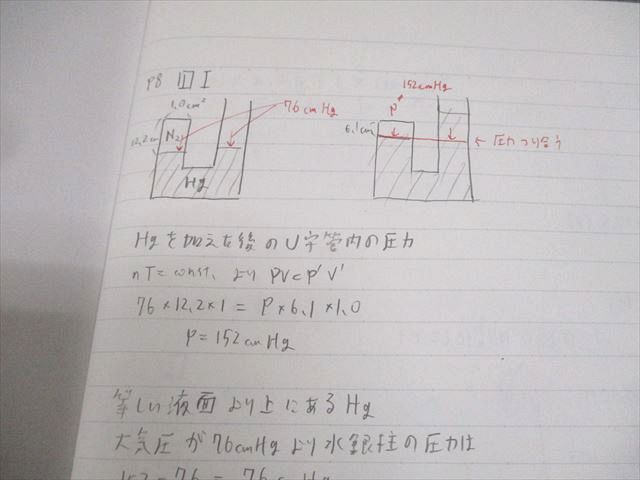 P8 Ⅲ I
1.0cm²
76cmHg
N₂
12.2cm
Hg
152cmHg
P
6.1cm
← 圧力つり合う
Hgを加えた後のU字管内の圧力
nT=const. より PV=P'V'
76×12.2×1 = P×6.1×1.0
P=152cmHg
等しい液面より上にあるHg
大気圧が76cmHgより水銀柱の圧力は
152-76 = 76cmHg